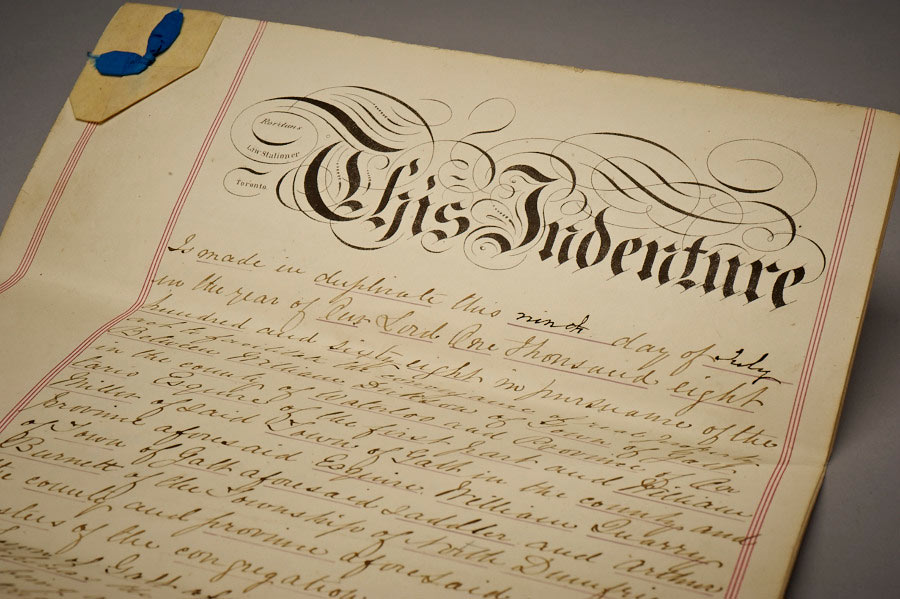 Rordans
Law Stationer
Toronto
This Indenture
Is made in duplicate this ninth day of July
in the year of Our Lord One Thousand eight
hundred and sixty eight in pursuance of the
act
Between William
in the county of Waterloo and Province of On
tario Esquire of the first part and William
Miller of said Town of Galt in the county and
Province aforesaid Esquire William Quarry
of Town of Galt aforesaid Saddler and Arthur
Burnett of the Township of North Dumfries
county and province aforesaid
of the congregation